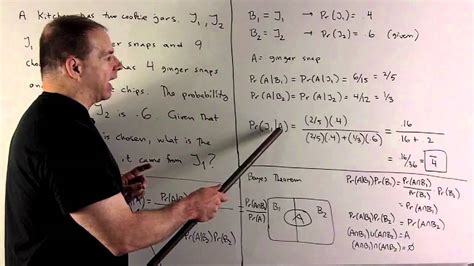 A Kitchen has two cookie jars. J₁, J₂
J₁ ginger snaps and 9
4 ginger snaps
chips. The probability
J₂ is .6. Given that
is chosen, what is the
it came from J₁?
B₁ = J₁ → Pr(J₁) = .4
B₂ = J₂ → Pr(J₂) = .6 (given)
A = ginger snap
Pr(A|B₁) = Pr(A|J₁) = 6/15 = 2/5
Pr(A|B₂) = Pr(A|J₂) = 4/12 = 1/3
Pr(J₁|A) = (2/5)(.4) / (2/5)(.4) + (1/3)(.6) = .16 / .16 + .2
= .16/.36 = 4
Bayes Theorem
B₁ A B₂
Pr(A|B₁)Pr(B₁) = Pr(A∩B₁)
Pr(A|B₂)Pr(B₂) = Pr(A∩B₂)
(A∩B₁)∪(A∩B₂) = A
(A∩B₁)∩(A∩B₂) = ∅